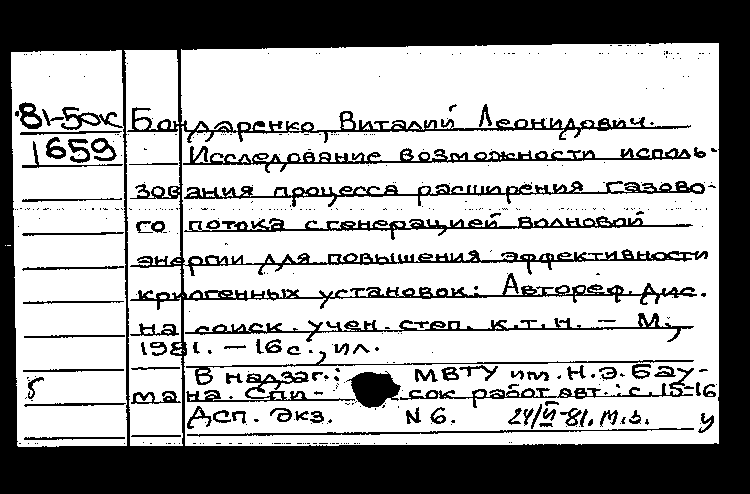 81-5ок Бондаренко, Виталий Леонидович.
1659 Исследование возможности исполь-
зования процесса расширения газово-
го потока с генерацией волновой
энергии для повышения эффективности
криогенных установок: Автореф. дис.
на соиск. учен. степ. к.т.н. - М.,
1981. - 16 с., ил.
В надзаг.: МВТУ им. Н.Э. Бау-
мана. Спи- сок работ авт.: с. 15-16
Дсп. Экз. N 6. 24/VI-81. М.З. у